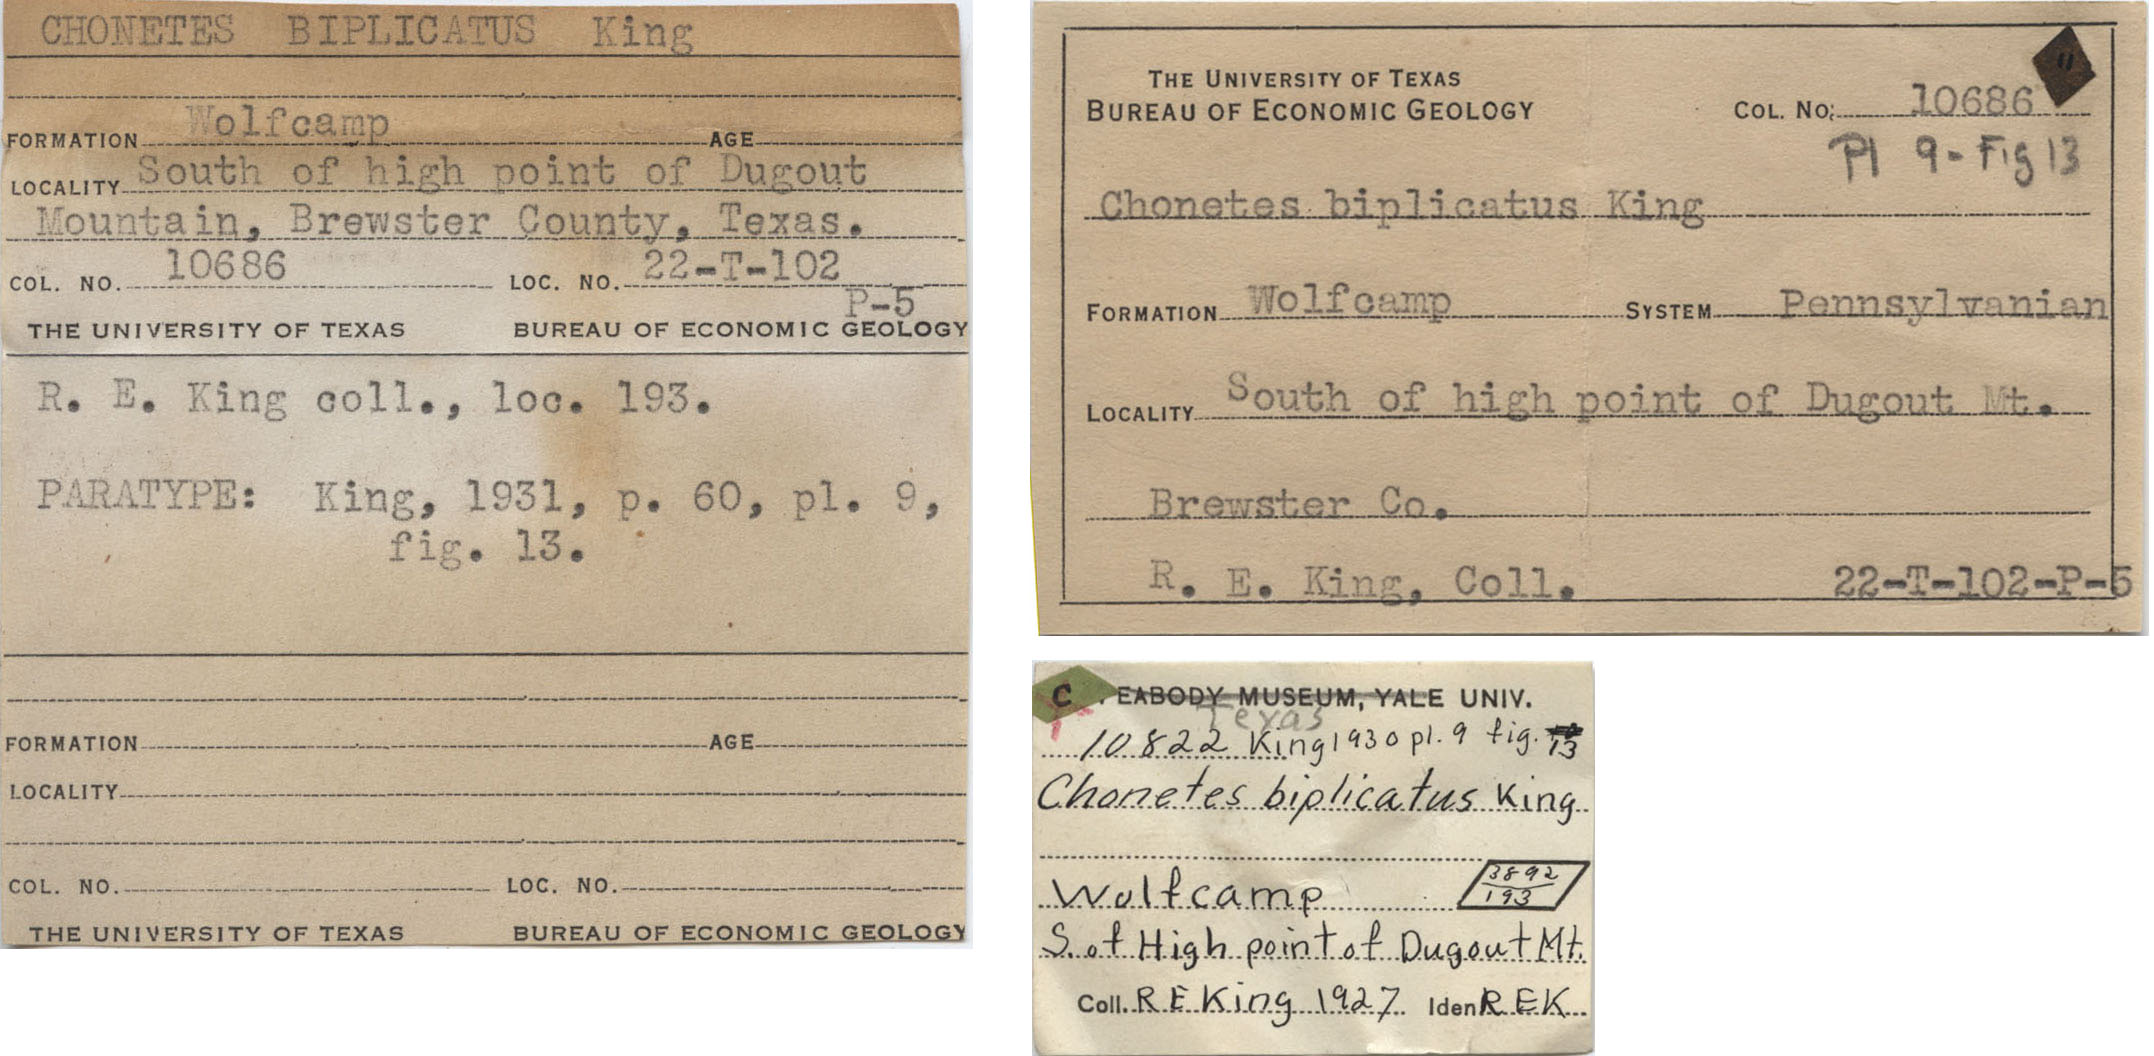 CHONETES BIPLICATUS King
FORMATION Wolfcamp AGE
LOCALITY South of high point of Dugout
Mountain, Brewster County, Texas.
COL. NO. 10686 LOC. NO. 22-T-102
P-5
THE UNIVERSITY OF TEXAS BUREAU OF ECONOMIC GEOLOGY
R. E. King coll., loc. 193.
PARATYPE: King, 1931, p. 60, pl. 9,
fig. 13.
FORMATION AGE
LOCALITY
COL. NO. LOC. NO.
THE UNIVERSITY OF TEXAS BUREAU OF ECONOMIC GEOLOGY
THE UNIVERSITY OF TEXAS
BUREAU OF ECONOMIC GEOLOGY COL. NO. 10686
Pl 9-Fig 13
Chonetes biplicatus King
FORMATION Wolfcamp SYSTEM Pennsylvanian
LOCALITY South of high point of Dugout Mt.
Brewster Co.
R. E. King, Coll. 22-T-102-P-5
C EABODY MUSEUM, YALE UNIV.
Texas
10822 King 1930 pl. 9 fig. 13
Chonetes biplicatus King
3892
Wolfcamp 193
S. of High point of Dugout Mt.
Coll. R E King 1927 Iden R E K